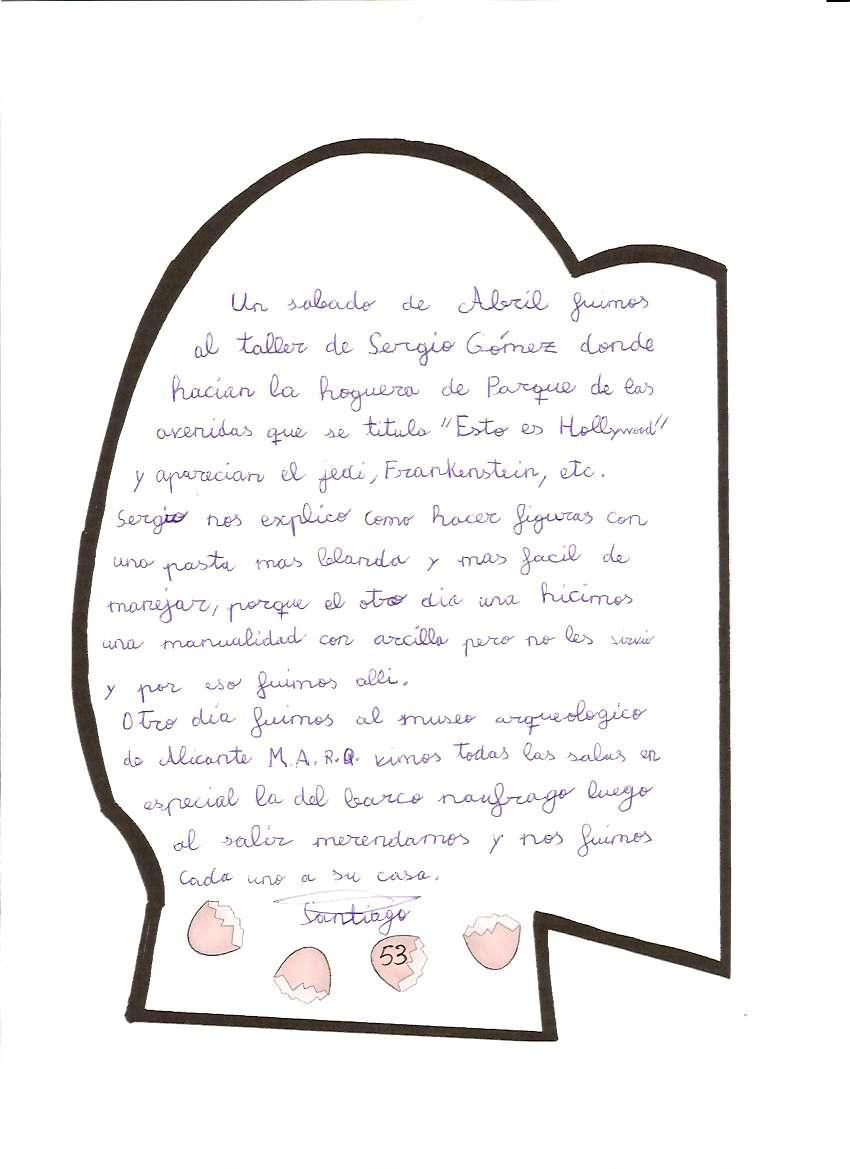 Un sabado de Abril fuimos
al taller de Sergio Gómez donde
hacían la hoguera de Parque de las
avenidas que se titula "Esto es Hollywood"
y aparecian el jedi, Frankenstein, etc.
Sergio nos explico como hacer figuras con
una pasta mas blanda y mas facil de
manejar, porque el otro dia una hicimos
una manualidad con arcilla pero no les sirvio
y por eso fuimos alli.
Otro día fuimos al museo arqueologico
de Alicante M.A.R.Q. vimos todas las salas en
especial la del barco naufrago luego
al salir merendamos y nos fuimos
cada uno a su casa.
Santiago
53